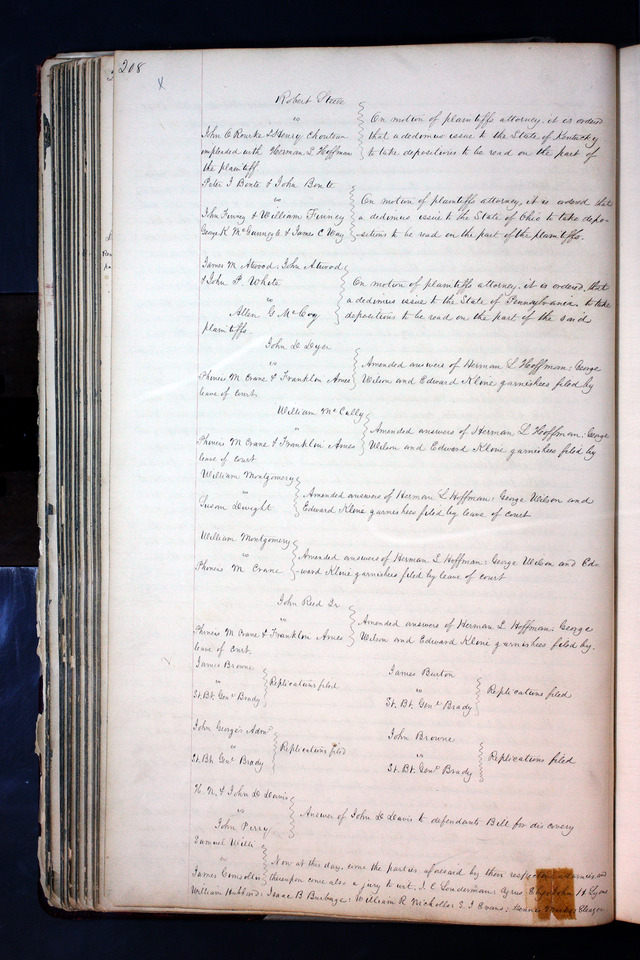 208
Robert Steele
vs
John O Rourke & Henry Chouteau
impleaded with Herman L Hoffman
On motion of plaintiffs attorney, it is ordered
that a dedimus issue to the State of Kentucky
to take depositions to be read on the part of
the plaintiff
Peter I Bonte & John Bonte
vs
John Finney & William Finney
George K McGunnegle & James C Way
On motion of plaintiffs attorney, it is ordered that
a dedimus issue to the State of Ohio to take depo-
sitions to be read on the part of the plaintiffs.
James M Atwood; John Atwood
& John P White
vs
Allen G McCoy
On motion of plaintiffs attorney, it is ordered, that
a dedimus issue to the State of Pennsylvania to take
depositions to be read on the part of the said
plaintiffs.
John D Dyer
vs
Phineis M Crane & Franklin Ames
Amended answers of Herman L Hoffman; George
Wilson and Edward Klone garnishees filed by
leave of court.
William McCully
vs
Phineis M Crane & Franklin Ames
Amended answers of Herman L Hoffman; George
Wilson and Edward Klone garnishees filed by
leave of court
William Montgomery
vs
Susan Dwight
Amended answers of Herman L Hoffman; George Wilson and
Edward Klone garnishees filed by leave of court
William Montgomery
vs
Phineis M Crane
Amended answers of Herman L Hoffman; George Wilson and Ed-
ward Klone garnishees filed by leave of court
John Reed Jr
vs
Phineis M Crane & Franklin Ames
Amended answers of Herman L Hoffman; George
Wilson and Edward Klone garnishees filed by
leave of court.
James Browne
vs
St. Bt. Genl Brady
Replications filed
James Burton
vs
St. Bt. Genl Brady
Replications filed
John George's Admr
vs
St. Bt. Genl Brady
Replications filed
John Browne
vs
St. Bt. Genl Brady
Replications filed
H. N. & John D Davis
vs
John Perry
Answer of John D Davis to defendants Bill for discovery
Samuel Willi
vs
James Consollo
Now at this day, come the parties aforesaid by their respective attornies, and
thereupon come also a jury to wit, J. C. Londerman; Cyrus John H Lyons
William Hubbard; Isaac B Burbage; William R Nicholls; S. J Evans; Eleazer